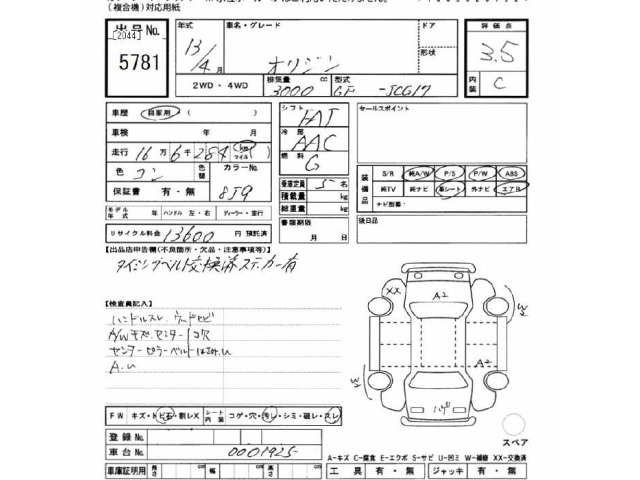 (複合機)対応用紙
出品No.
[2044]
5781
年式
13/4月
車名・グレード
オリジン
ドア
形状
評価点
3.5
内装
C
2WD・4WD
排気量
3000
cc
型式
GF
-JCG17
車歴
自家用
( )
車検
年 月
走行
16万6千254
km
マイル
色
コン
色替
カラーNo.
8J9
保証書
有・無
モデル年式
年
ハンドル 左・右
ディーラー・並行
リサイクル料金
13600
円 預託済
シフト
FAT
冷房
AAC
燃料
G
乗車定員
5
名
積載量
kg
総重量
kg
書類期限
月 日
セールスポイント
装備品
S/R
純A/W
P/S
P/W
ABS
純TV
純ナビ
革シート
外ナビ
エアB
ナビ型番:
後日品
【出品店申告欄(不良箇所・欠品・注意事項等)】
タイミングベルト交換済ステッカー有
【検査員記入】
ハンドルスレ ウッドヒビ
A/Wキズ センターJ穴
センターピラーベルト
FW
キズ・トビ石・割レX
シート内装
コゲ・穴・汚レ・シミ・破レ・スレ
登録No.
車台No.
0001925
車庫証明用
長さ
cm
幅
cm
高さ
cm
XX
A2
A2
スペア
A-キズ C-腐食 E-エクボ S-サビ U-凹ミ W-補修 XX-交換済
工具
有・無
ジャッキ
有・無